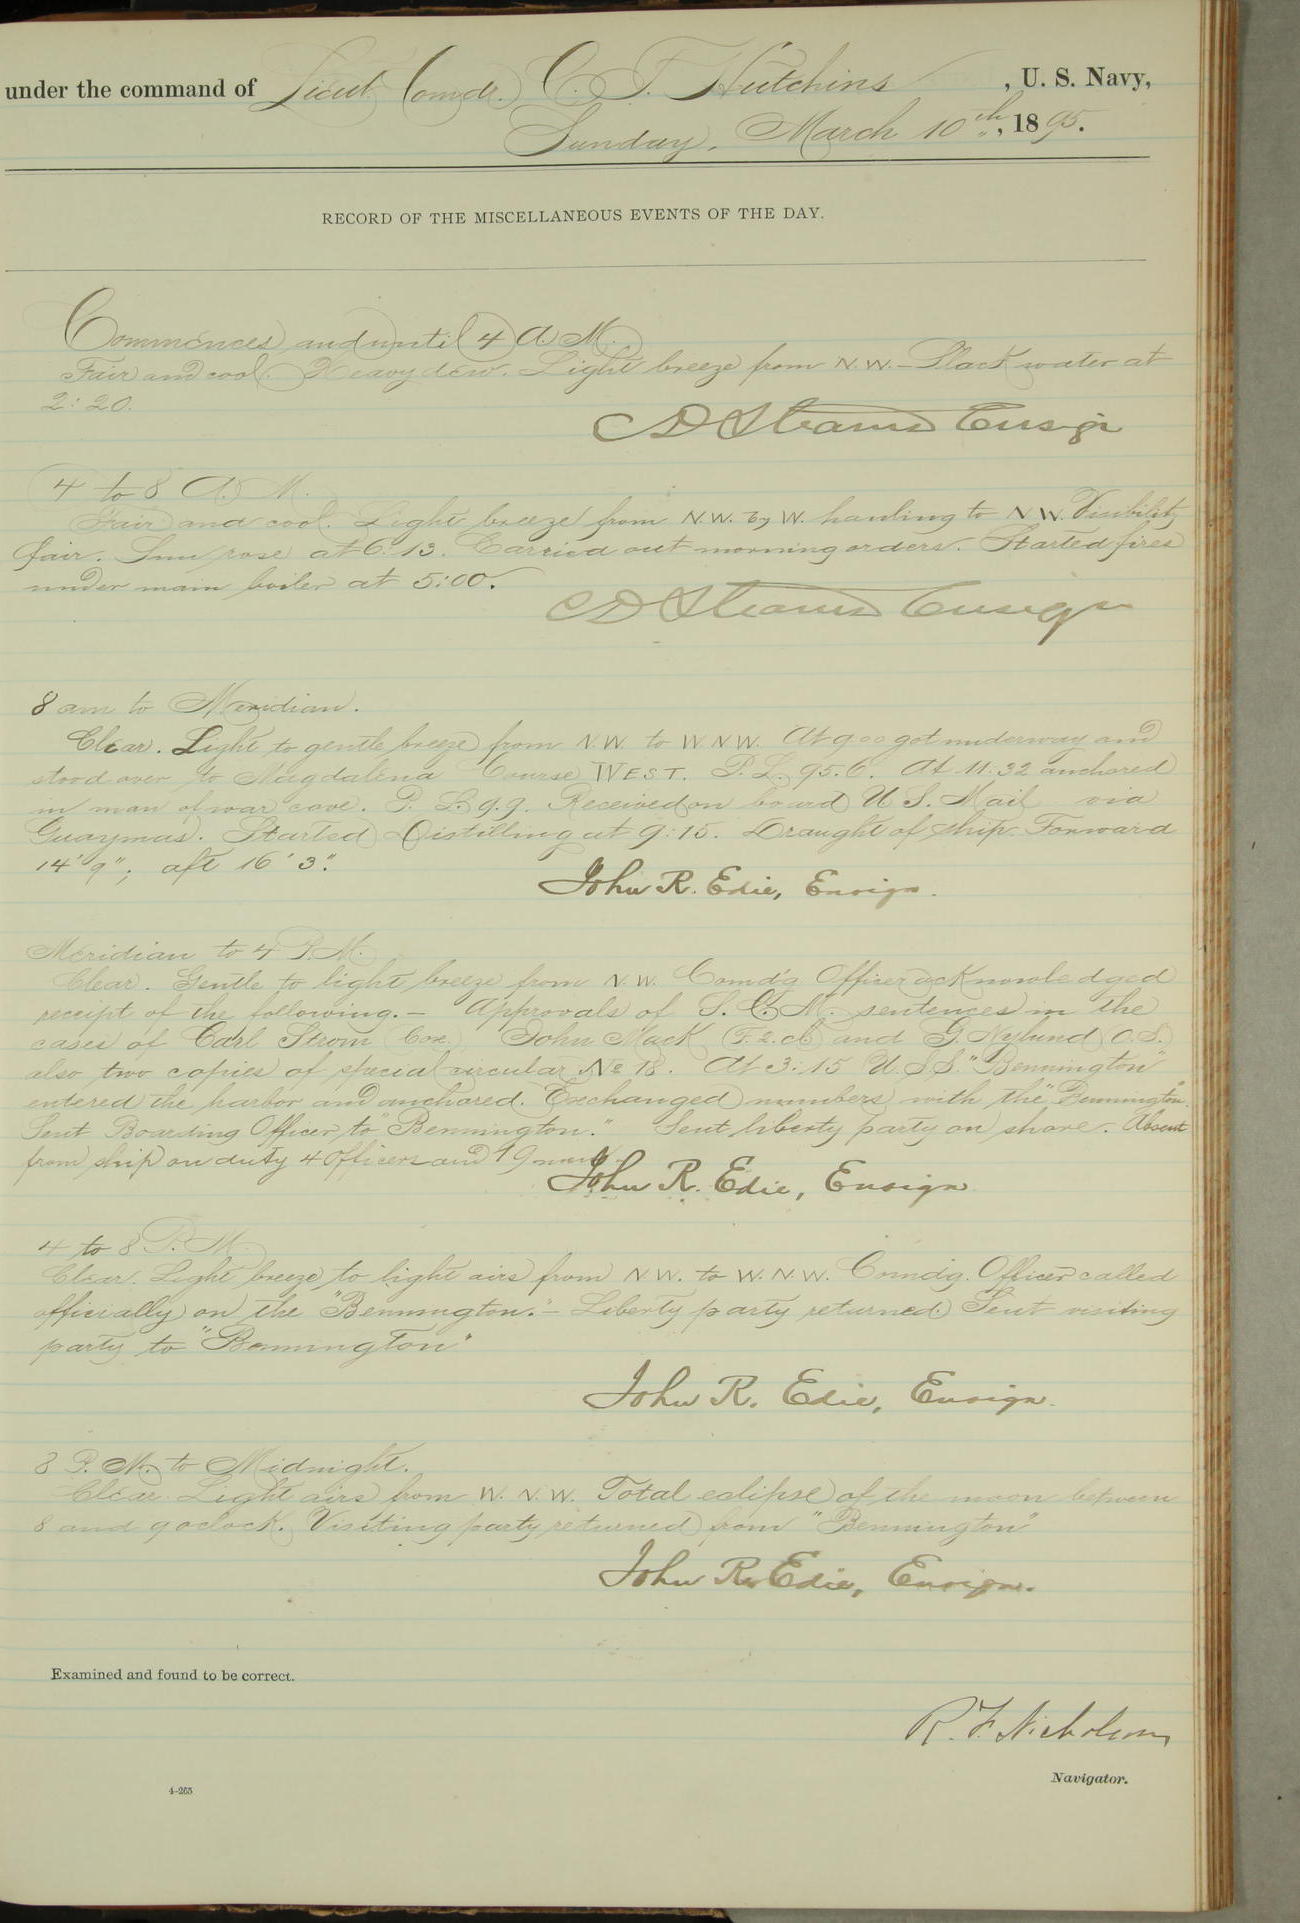 under the command of Lieut. Comdr. C. T. Hutchins, U. S. Navy,
Sunday, March 10th, 1895.
RECORD OF THE MISCELLANEOUS EVENTS OF THE DAY.
Commences and until 4 A. M.
Fair and cool. Heavy dew. Light breeze from N.W. – Slack water at
2:20.
C D Stearns Ensign
4 to 8 A. M.
Fair and cool. Light breeze from N.W. by W. hauling to N W. Visibility
fair. Sun rose at 6:13. Carried out morning orders. Started fires
under main boiler at 5:00.
C D Stearns Ensign
8 am to Meridian.
Clear. Light to gentle breeze from N.W. to W N W. At 9 00 got underway and
stood over to Magdalena Course WEST. P. L. 95.6. At 11:32 anchored
in man of war cove. P. L. 9.9. Received on board U S. Mail via
Guaymas. Started Distilling at 9:15. Draught of ship. Forward
14' 9"; aft 16' 3".
John R. Edie, Ensign.
Meridian to 4 P.M.
Clear. Gentle to light breeze from N.W. Comd'g Officer acknowledged
receipt of the following. – Approvals of S. C. M. sentences in the
cases of Carl Strom (Cox.) John Mack (F. 2. cl) and G. Nylund (O.S.)
also two copies of special circular No 18. At 3:15 U.S.S. "Bennington"
entered the harbor and anchored. Exchanged numbers with the "Bennington".
Sent Boarding Officer to "Bennington." Sent liberty party on shore. Absent
from ship on duty 4 Officers and 19
John R. Edie, Ensign
4 to 8 P. M.
Clear. Light breeze to light airs from N.W. to W.N.W. Comdg. Officer called
officially on the "Bennington." – Liberty party returned Sent visiting
party to "Bennington"
John R. Edie, Ensign.
8 P. M. to Midnight.
Clear. Light airs from W. N. W. Total eclipse of the moon between
8 and 9 oclock. Visiting party returned from "Bennington"
John R. Edie, Ensign.
Examined and found to be correct.
R. F. Nicholson
Navigator.
4-265